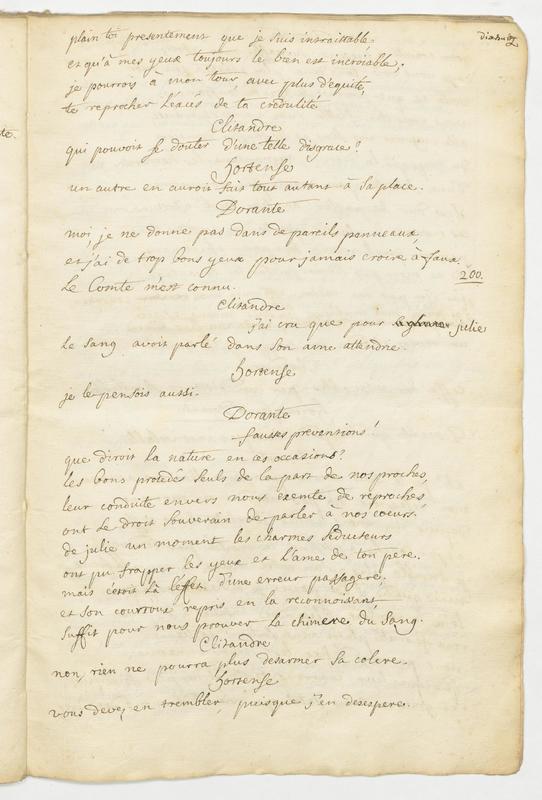 plains presentement que je suis intraittable,
et qu'à mes yeux toujours le bien est incroiable;
je pourrois à mon tour, avec plus d'equité,
te reprocher l'excès de ta credulité.
Clitandre
qui pouvoit se douter d'une telle disgrace?
hortense
un autre en auroit fait tout autant à sa place.
Dorante
moi, je ne donne pas dans de pareils panneaux,
et j'ai de trop bons yeux pour jamais croire à faux.
200.
Le Comte m'est connu.
Clitandre
j'ai cru que pour julie
le sang avoit parlé dans son ame attendrie.
hortense
je le pensois aussi.
Dorante
fausses preventions!
que diroit la nature en ces occasions?
les bons procédés seuls de la part de nos proches,
leur conduite envers nous exemte de reproches
ont le droit souverain de parler à nos coeurs.
de julie un moment les charmes seducteurs
ont pu frapper les yeux et l'ame de ton pere.
mais c'étoit là l'effet d'une erreur passagere;
et son courroux repris en la reconnoissant,
suffit pour nous prouver la chimere du sang.
Clitandre
non, rien ne pourra plus desarmer sa colere.
hortense
vous devez en trembler, puisque j'en desespere.